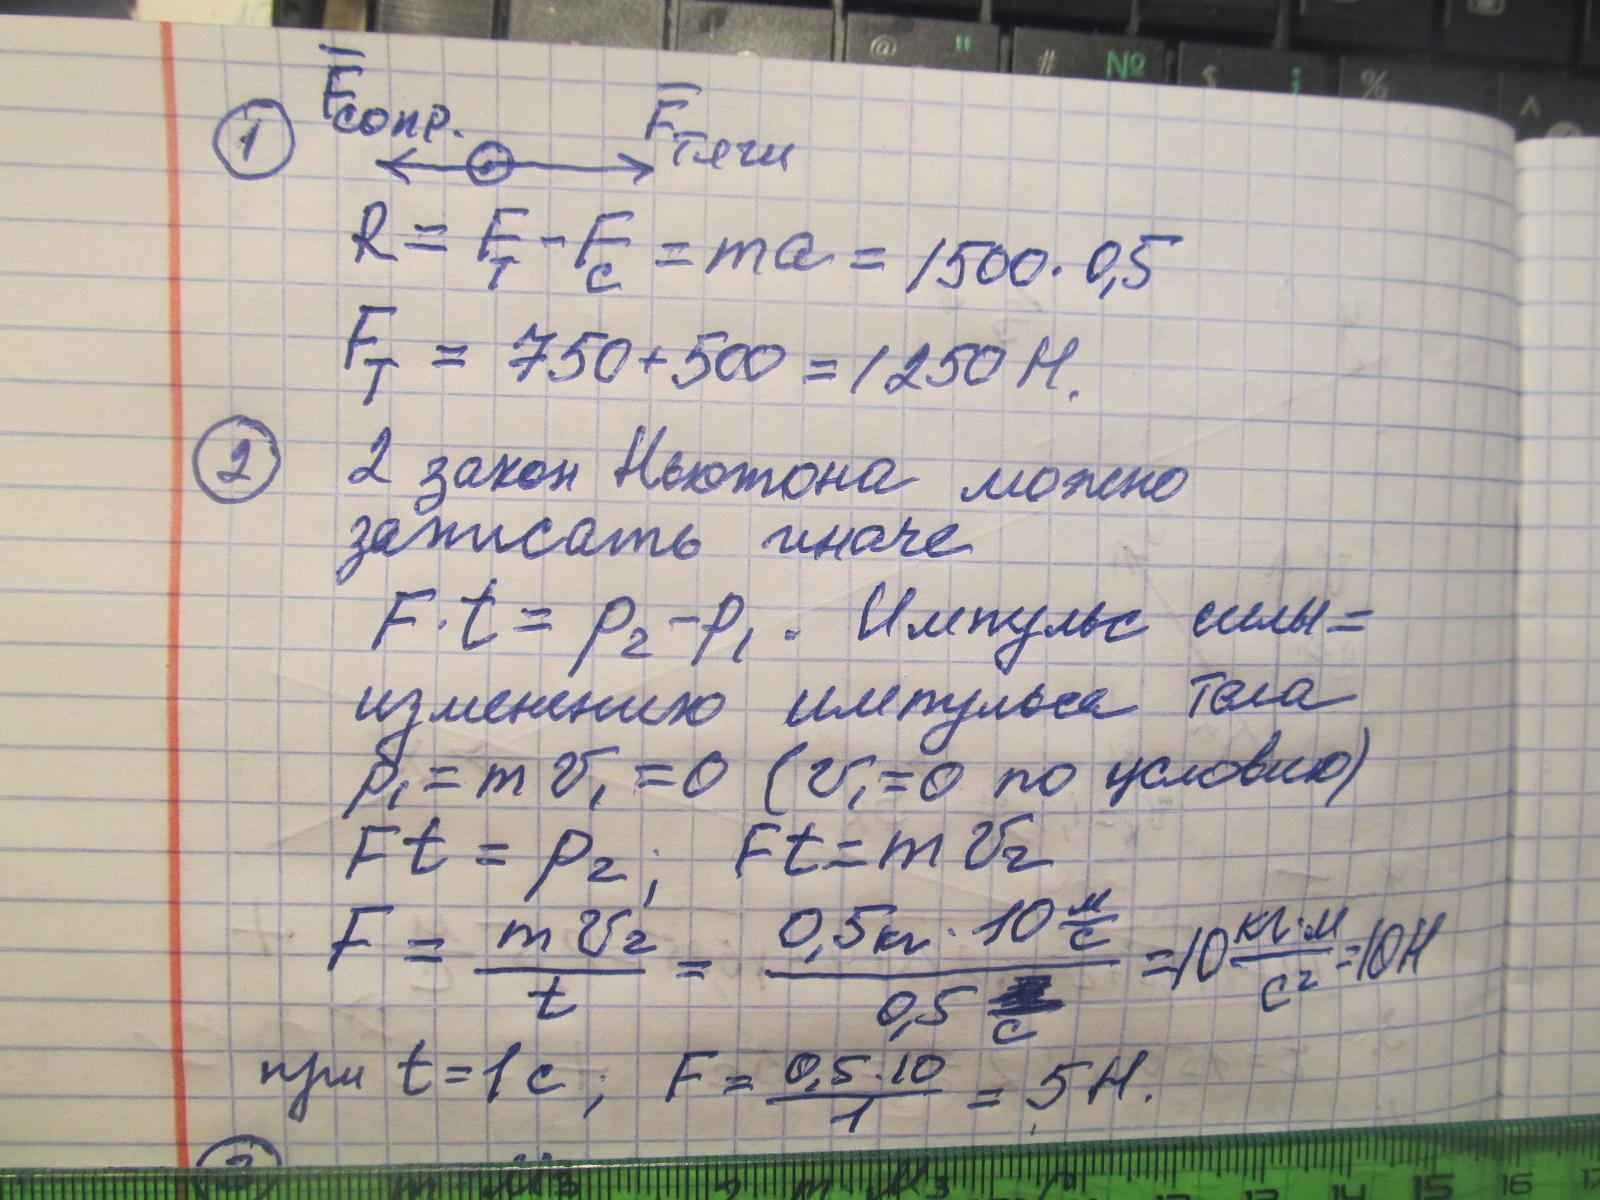 @ " # № $ ; % ^
F̅сопр. F̅тяги
①
R = Fт - Fс = ma = 1500 · 0,5
Fт = 750 + 500 = 1250 Н.
② 2 закон Ньютона можно
записать иначе
F · t = p₂ - p₁. Импульс силы =
изменению импульса тела
p₁ = m v₁ = 0 (v₁ = 0 по условию)
Ft = p₂; Ft = m v₂
F = m v₂ / t = 0,5 кг · 10 м/с / 0,5 с = 10 кг·м/с² = 10 Н
при t = 1 с; F = 0,5 · 10 / 1 = 5 Н.
12 13 14 15 16 17